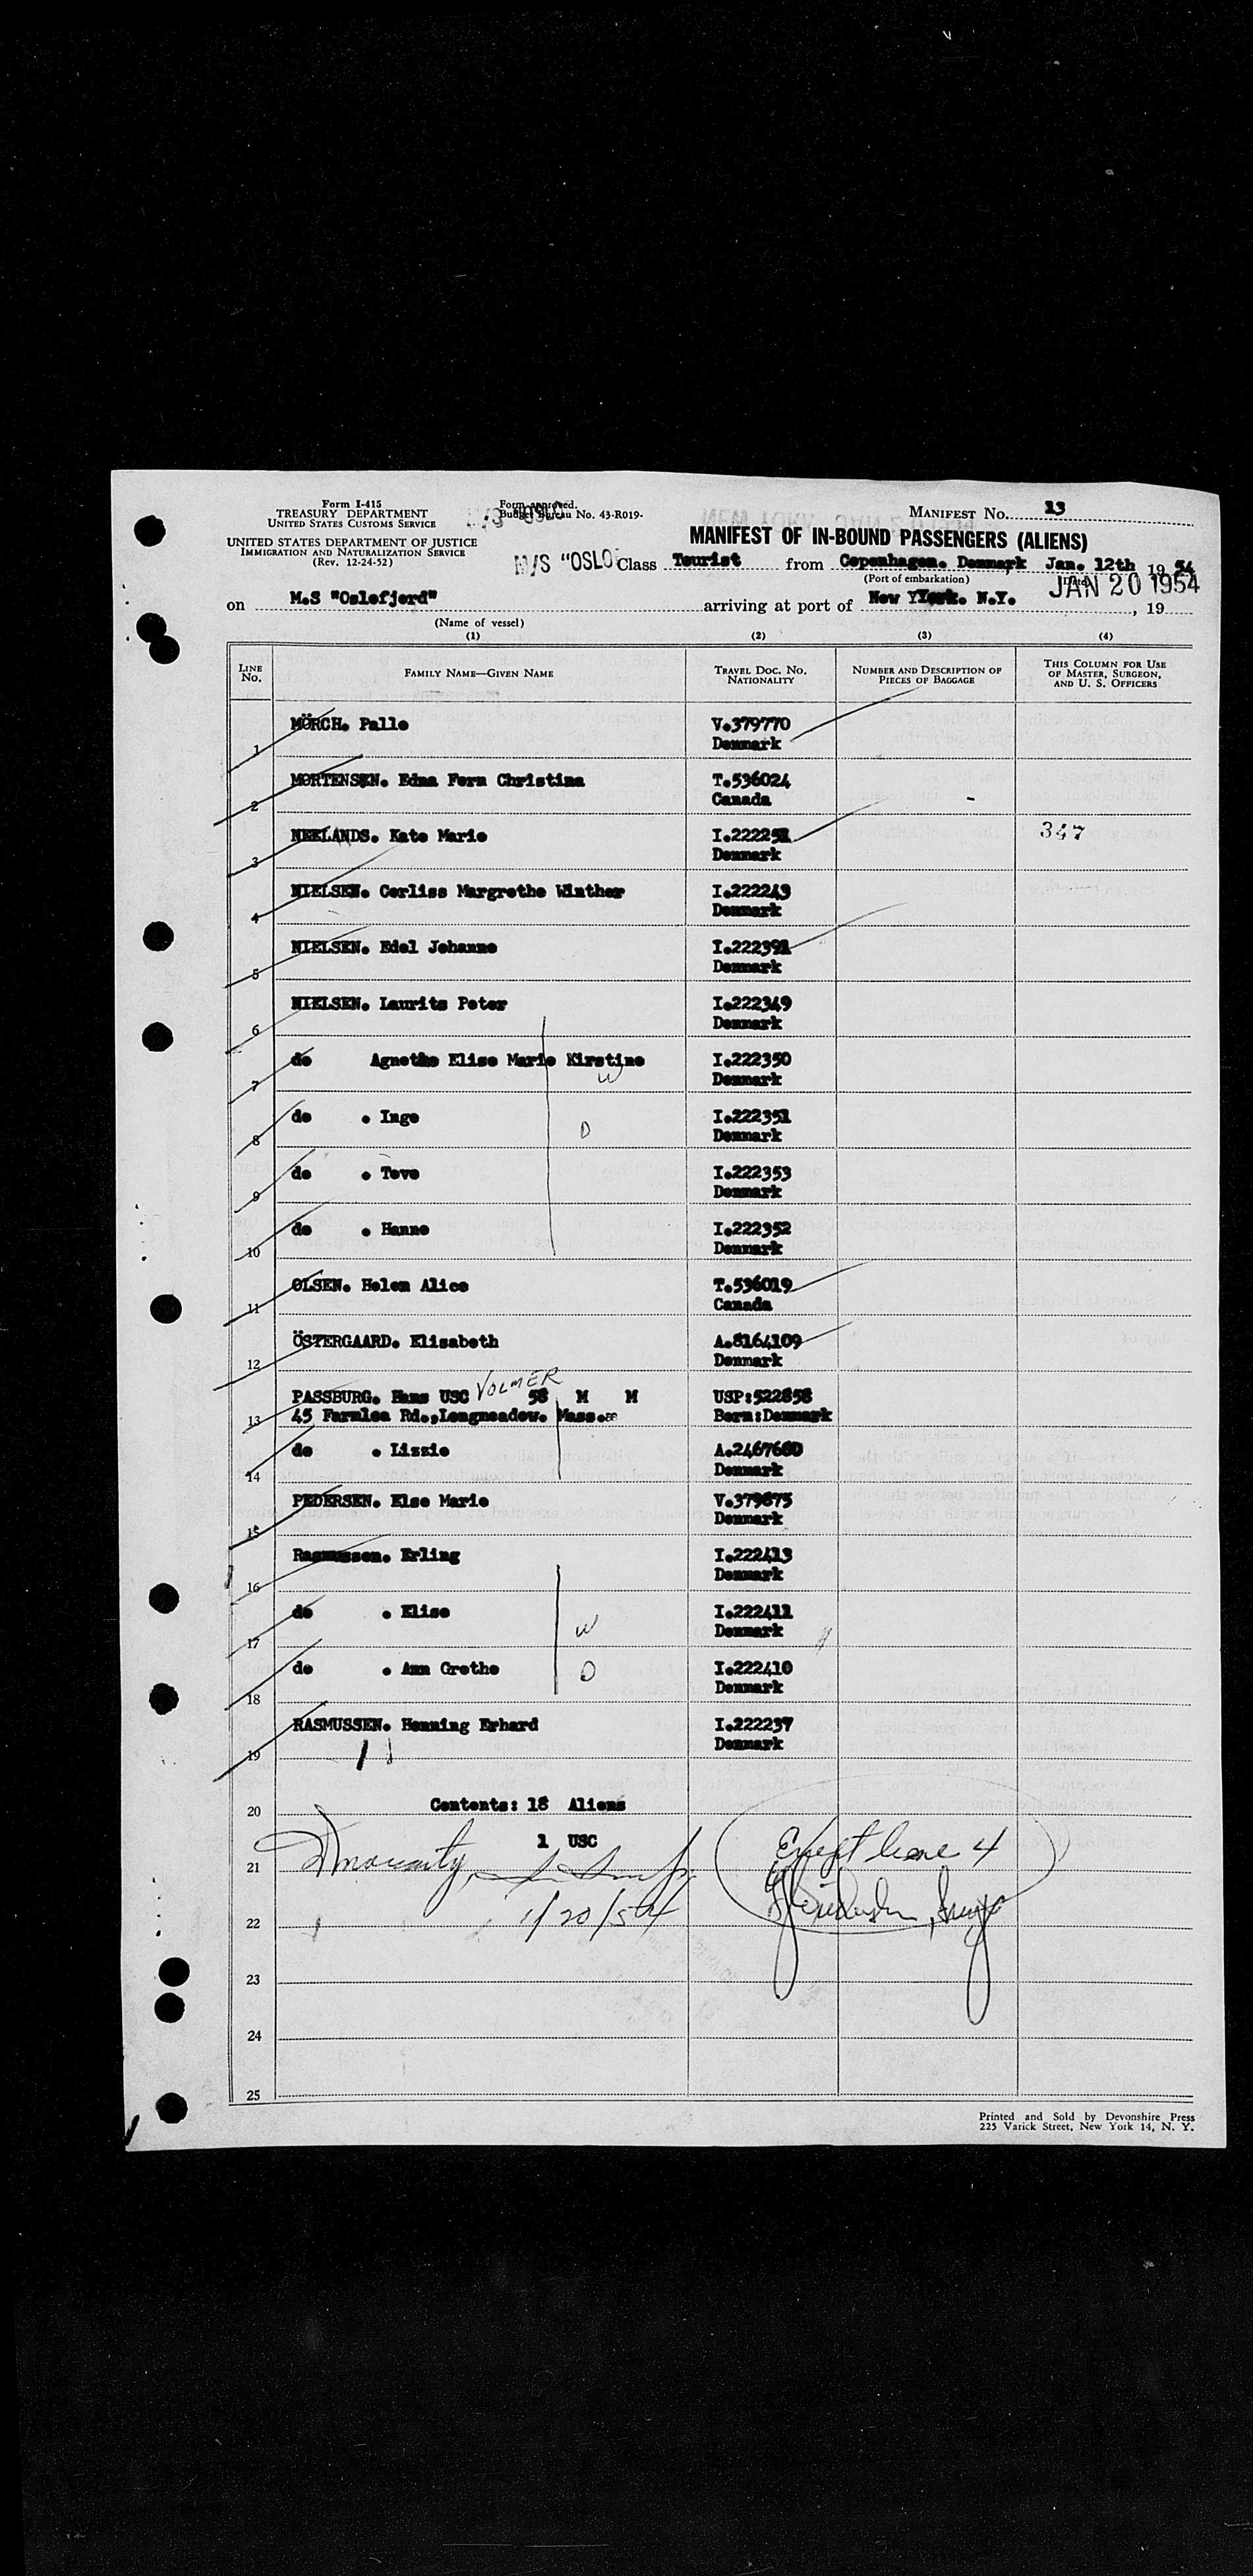 Form I-415
TREASURY DEPARTMENT
UNITED STATES CUSTOMS SERVICE
UNITED STATES DEPARTMENT OF JUSTICE
IMMIGRATION AND NATURALIZATION SERVICE
(Rev. 12-24-52)
Form approved.
Budget Bureau No. 43-R019-
MANIFEST No. 13
MANIFEST OF IN-BOUND PASSENGERS (ALIENS)
M/S "OSLO Class Tourist from Copenhagen. Denmark Jan. 12th 1954
(Port of embarkation)
JAN 20 1954
on M.S "Oslofjord" arriving at port of New York. N.Y. , 19
(Name of vessel)
(1) (2) (3) (4)
LINE No. FAMILY NAME—GIVEN NAME TRAVEL DOC. NO. NATIONALITY NUMBER AND DESCRIPTION OF PIECES OF BAGGAGE THIS COLUMN FOR USE OF MASTER, SURGEON, AND U. S. OFFICERS
1 MÖRCH. Palle V.379770
Denmark
2 MORTENSEN. Edna Fern Christina T.536024
Canada
3 NEELANDS. Kate Marie I.222251 347
Denmark
4 NIELSEN. Corliss Margrethe Winther I.222243
Denmark
5 NIELSEN. Edel Johanne I.222391
Denmark
6 NIELSEN. Laurits Peter I.222349
Denmark
7 do Agnethe Elise Marie Kirstine I.222350
W Denmark
8 do . Inge I.222351
D Denmark
9 do . Tove I.222353
Denmark
10 do . Hanne I.222352
Denmark
11 OLSEN. Helen Alice T.536019
Canada
12 ÖSTERGAARD. Elisabeth A.8164109
Denmark
13 PASSBURG. Hans USC VOLMER 58 M M USP:522858
45 Farmlea Rd.,Longmeadow. Mass. Born:Denmark
14 do . Lizzie A.2467660
Denmark
15 PEDERSEN. Else Marie V.379875
Denmark
16 Rasmussen. Erling I.222413
Denmark
17 do . Elise I.222411
W Denmark
18 do . Ann Grethe I.222410
D Denmark
19 RASMUSSEN. Henning Erhard I.222237
Denmark
20 Contents: 18 Aliens
1 USC
21 Except line 4
22 1/20/54
23
24
25
Printed and Sold by Devonshire Press
225 Varick Street, New York 14, N. Y.